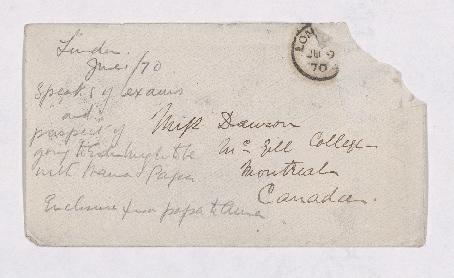 London.
June/70
LON
JU 9
70
Speaks of exams
"and"
prospect of
going to Edinburgh to be
with Mama & Papa
Enclosure from papa to Anna
Miss Dawson
Mc Gill College
Montreal
Canada.